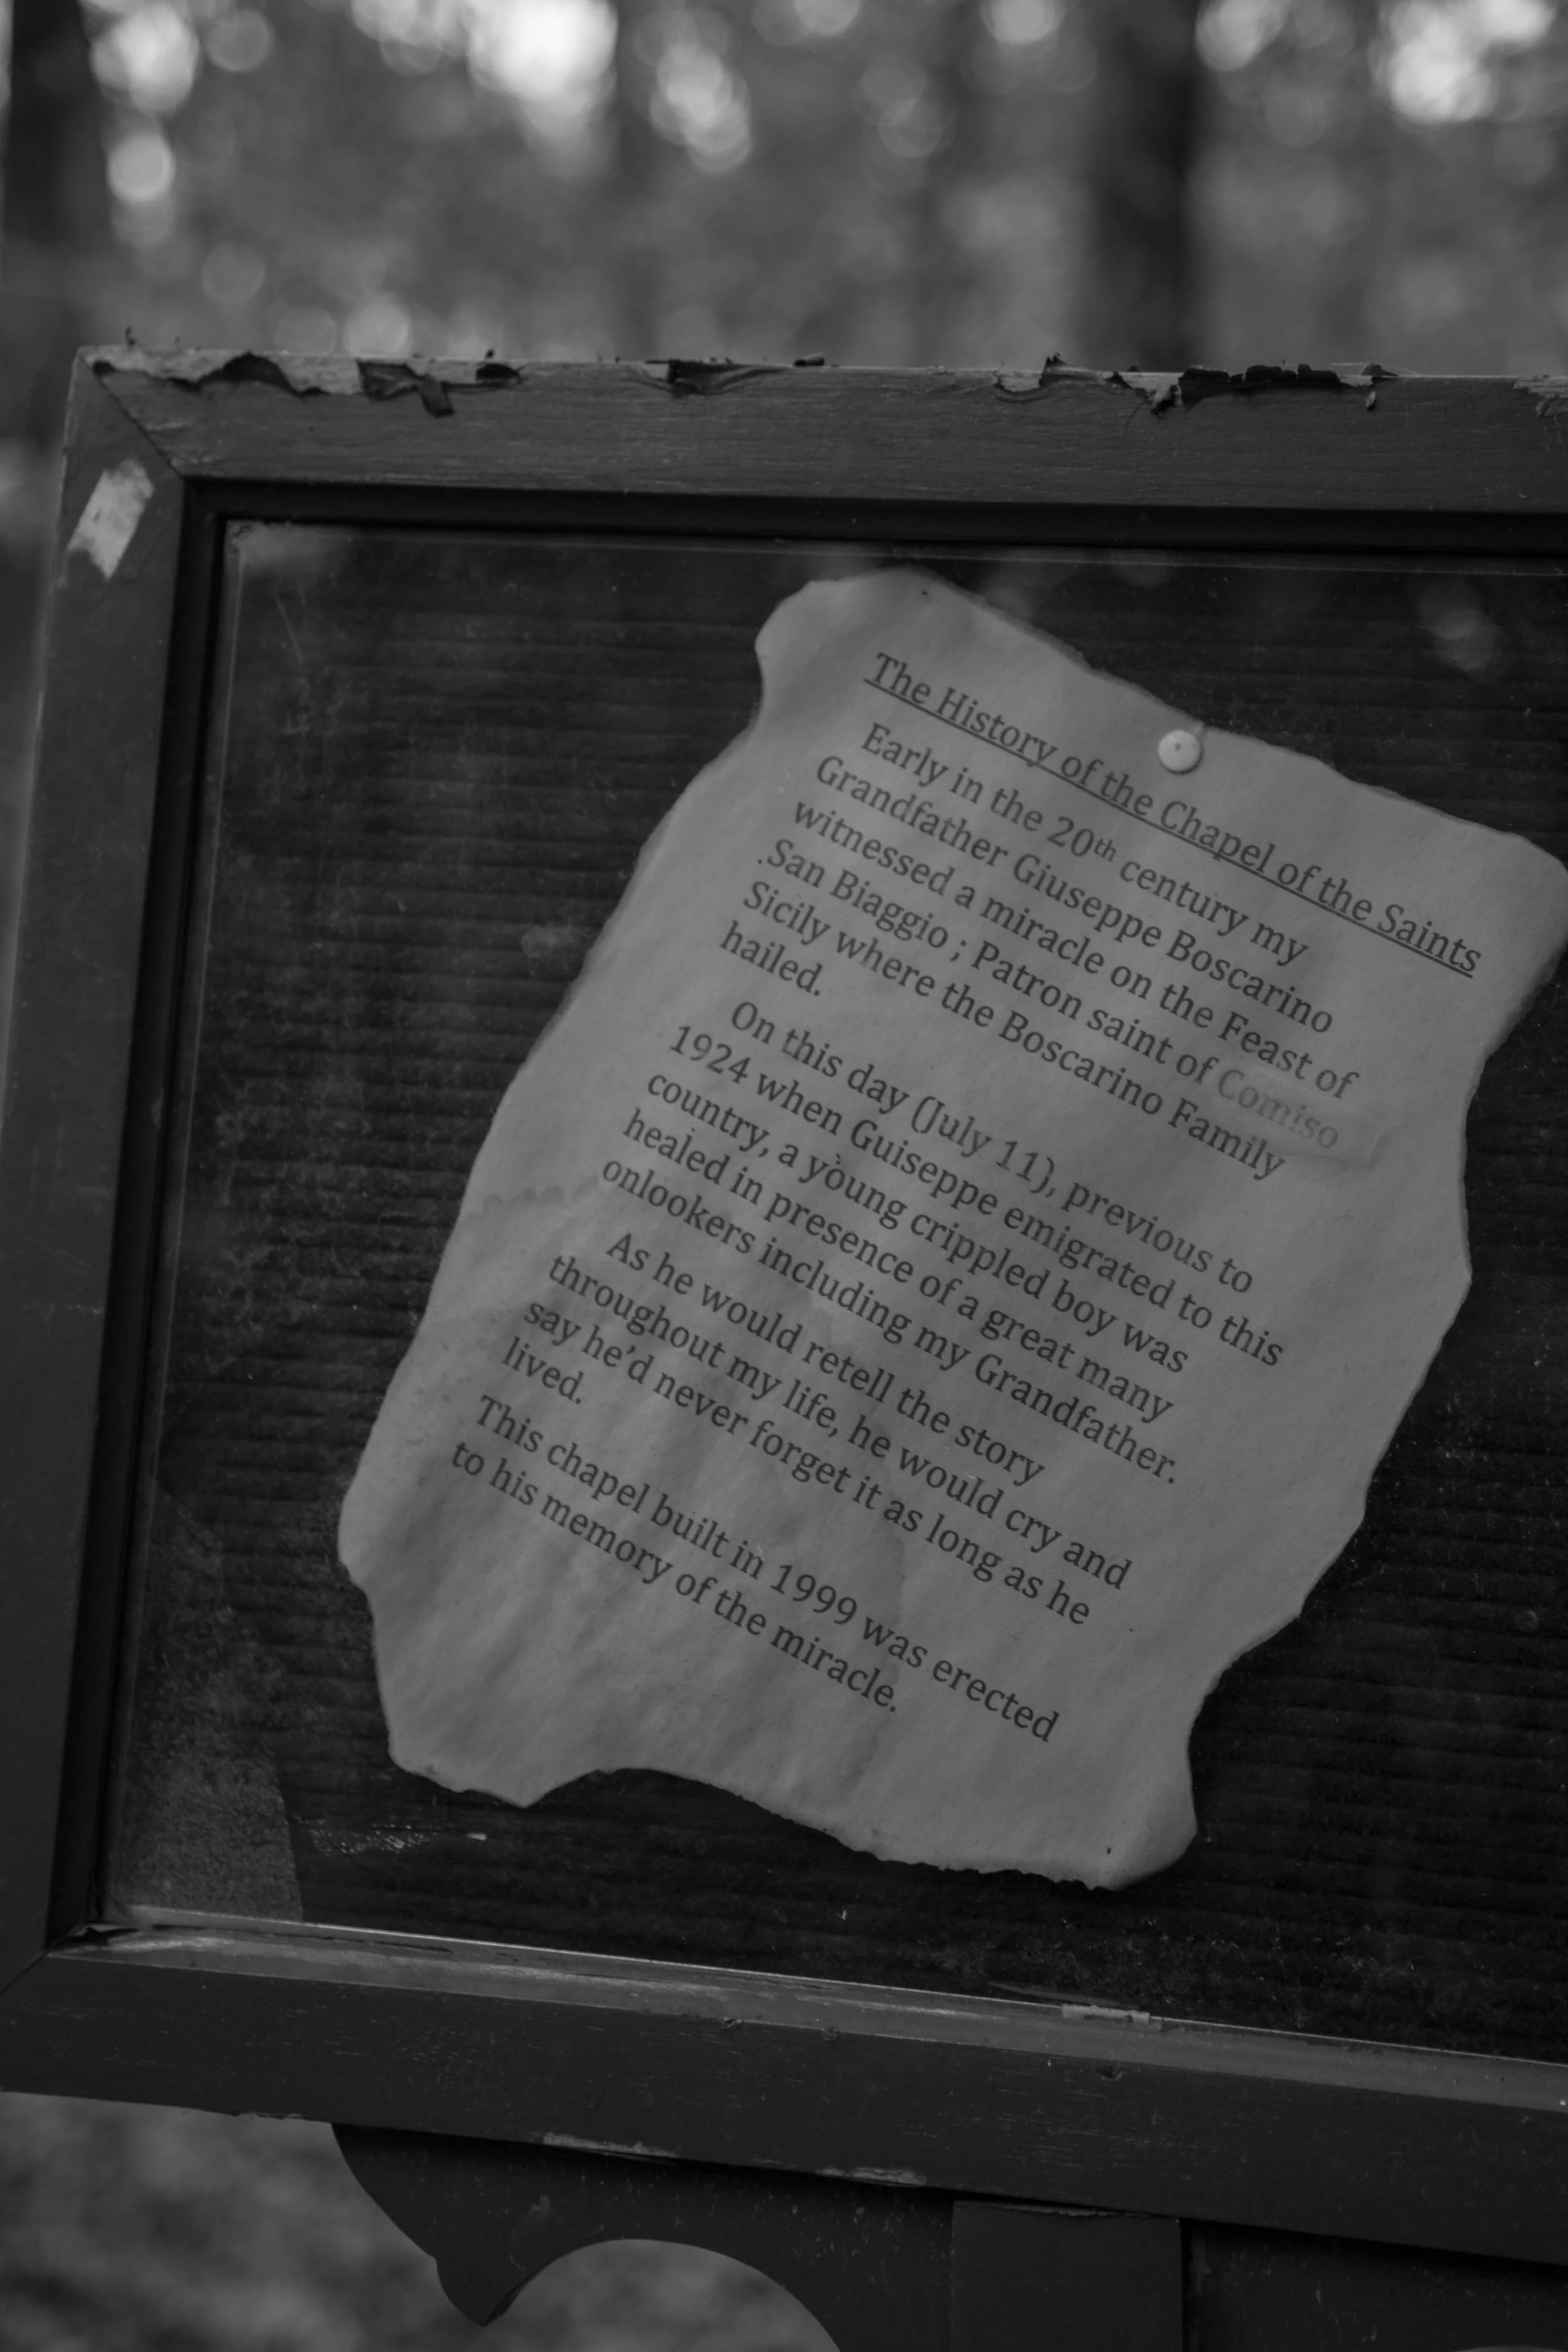 The History of the Chapel of the Saints
Early in the 20th century my
Grandfather Giuseppe Boscarino
witnessed a miracle on the Feast of
.San Biaggio ; Patron saint of Comiso
Sicily where the Boscarino Family
hailed.
On this day (July 11), previous to
1924 when Guiseppe emigrated to this
country, a young crippled boy was
healed in presence of a great many
onlookers including my Grandfather.
As he would retell the story
throughout my life, he would cry and
say he'd never forget it as long as he
lived.
This chapel built in 1999 was erected
to his memory of the miracle.